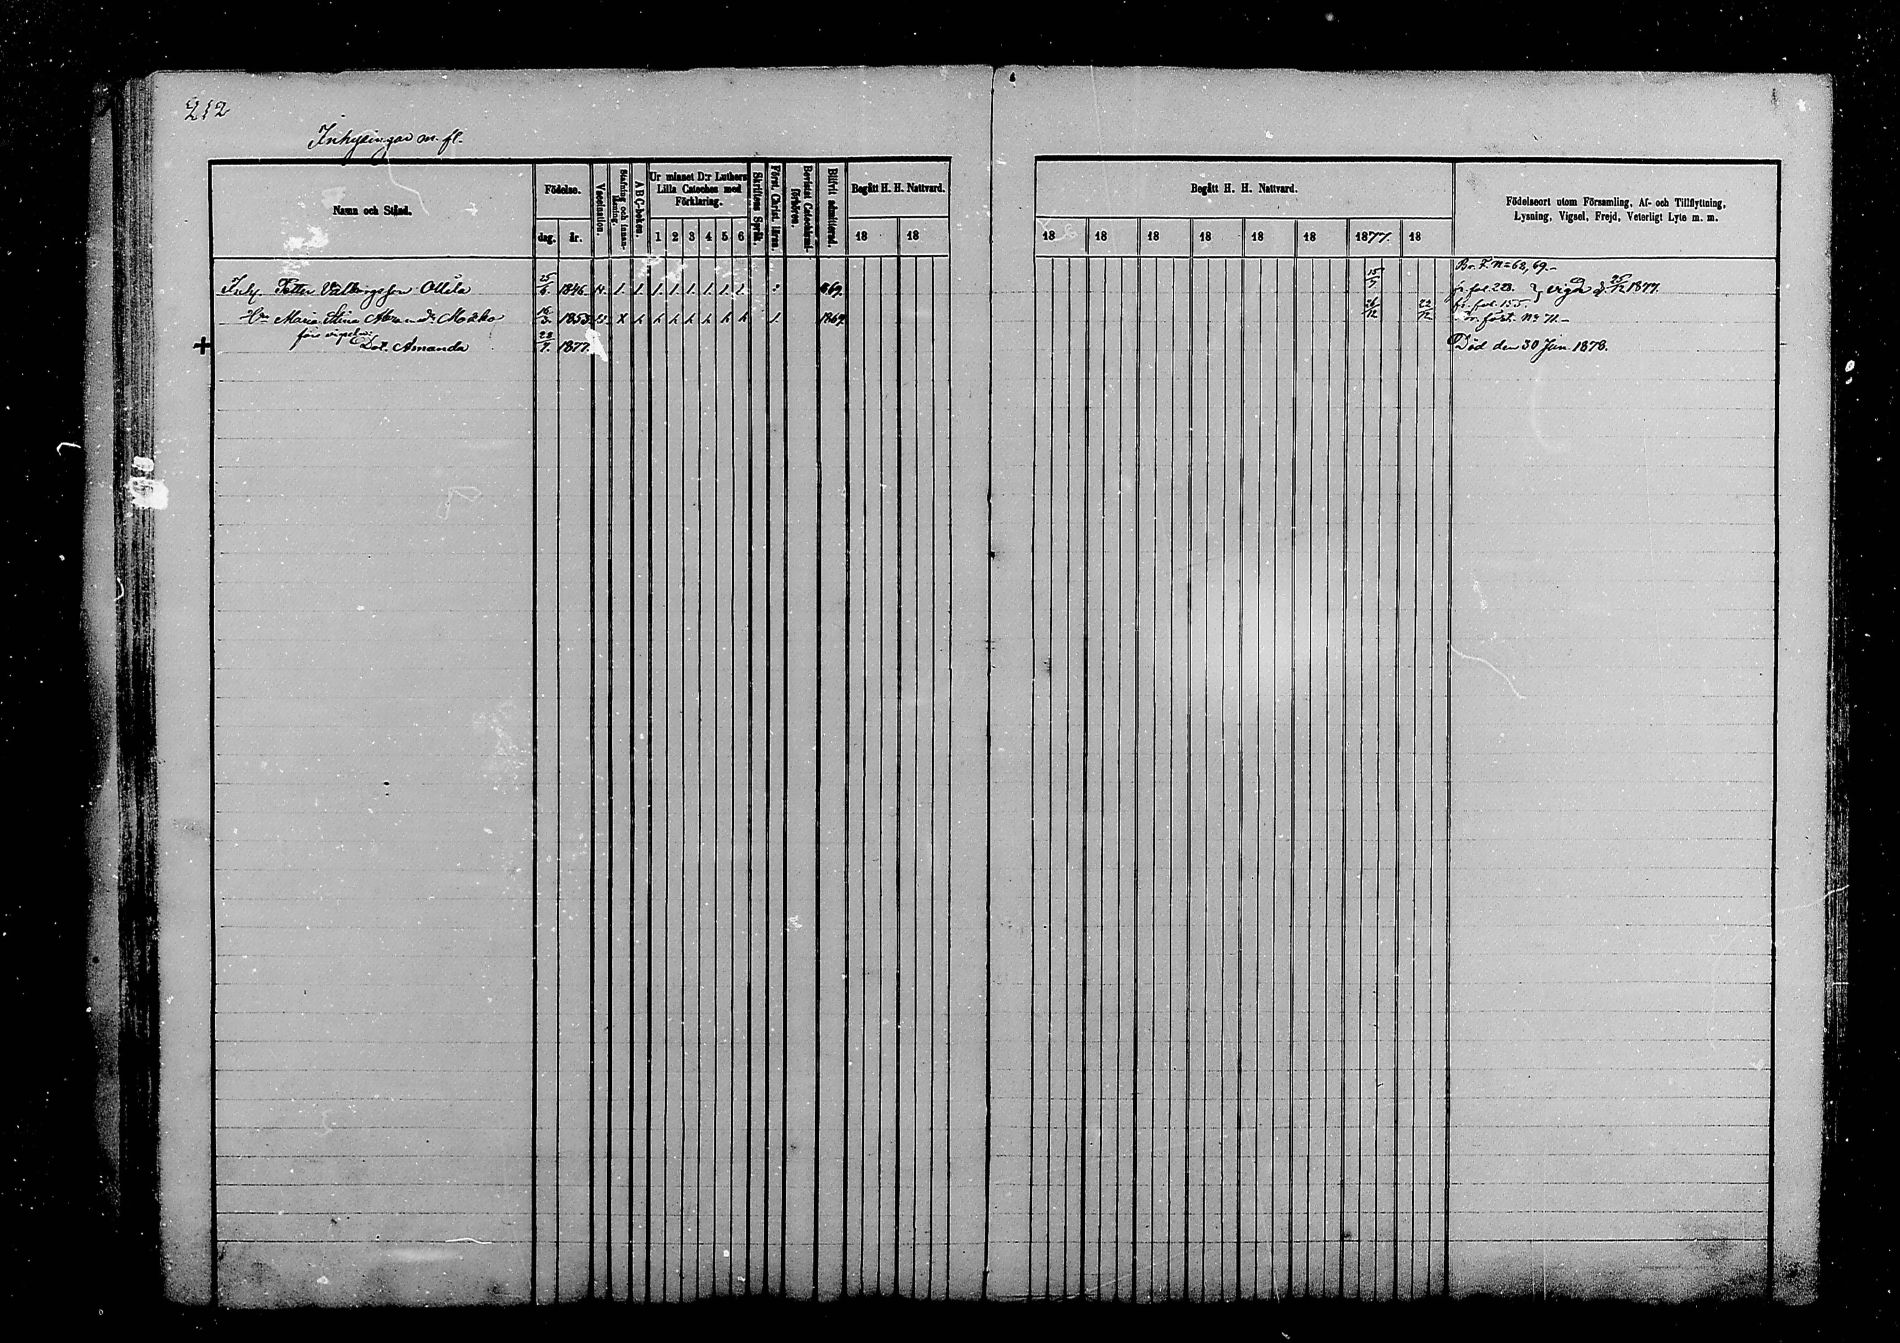 212
Inhysingar m. fl.
Namn och Stånd.
Födelse.
dag. år.
Vaccination.
Stafning och innanläsning.
A B C-boken.
Ur minnet D:r Luthers Lilla Cateches med Förklaring.
1 2 3 4 5 6
Skriftens Språk.
Först. Christ. läran.
Bevistat Catechismiförhören.
Blifvit admitterad.
Begått H. H. Nattvard.
18 18
Begått H. H. Nattvard.
18 18 18 18 18 18 1877. 18
Födelseort utom Församling, Af- och Tillflyttning,
Lysning, Vigsel, Frejd, Veterligt Lyte m. m.
B. F. N:o 68, 69.
Inh. Petter Ollila 25/6. 1846. 1. 1. 1. 1. 1. 1. 1. 1. 869. 15/7 fr. fol. 223. 25/12 1877.
Hu Maria Stina Abram dr Matko 16/3. 1853. x 1869. 26/12 22/12 fr. fol. 155. först. N:o 71.
före
+ Dot. Amanda 23/7. 1877. Död den 30 Jan. 1878.